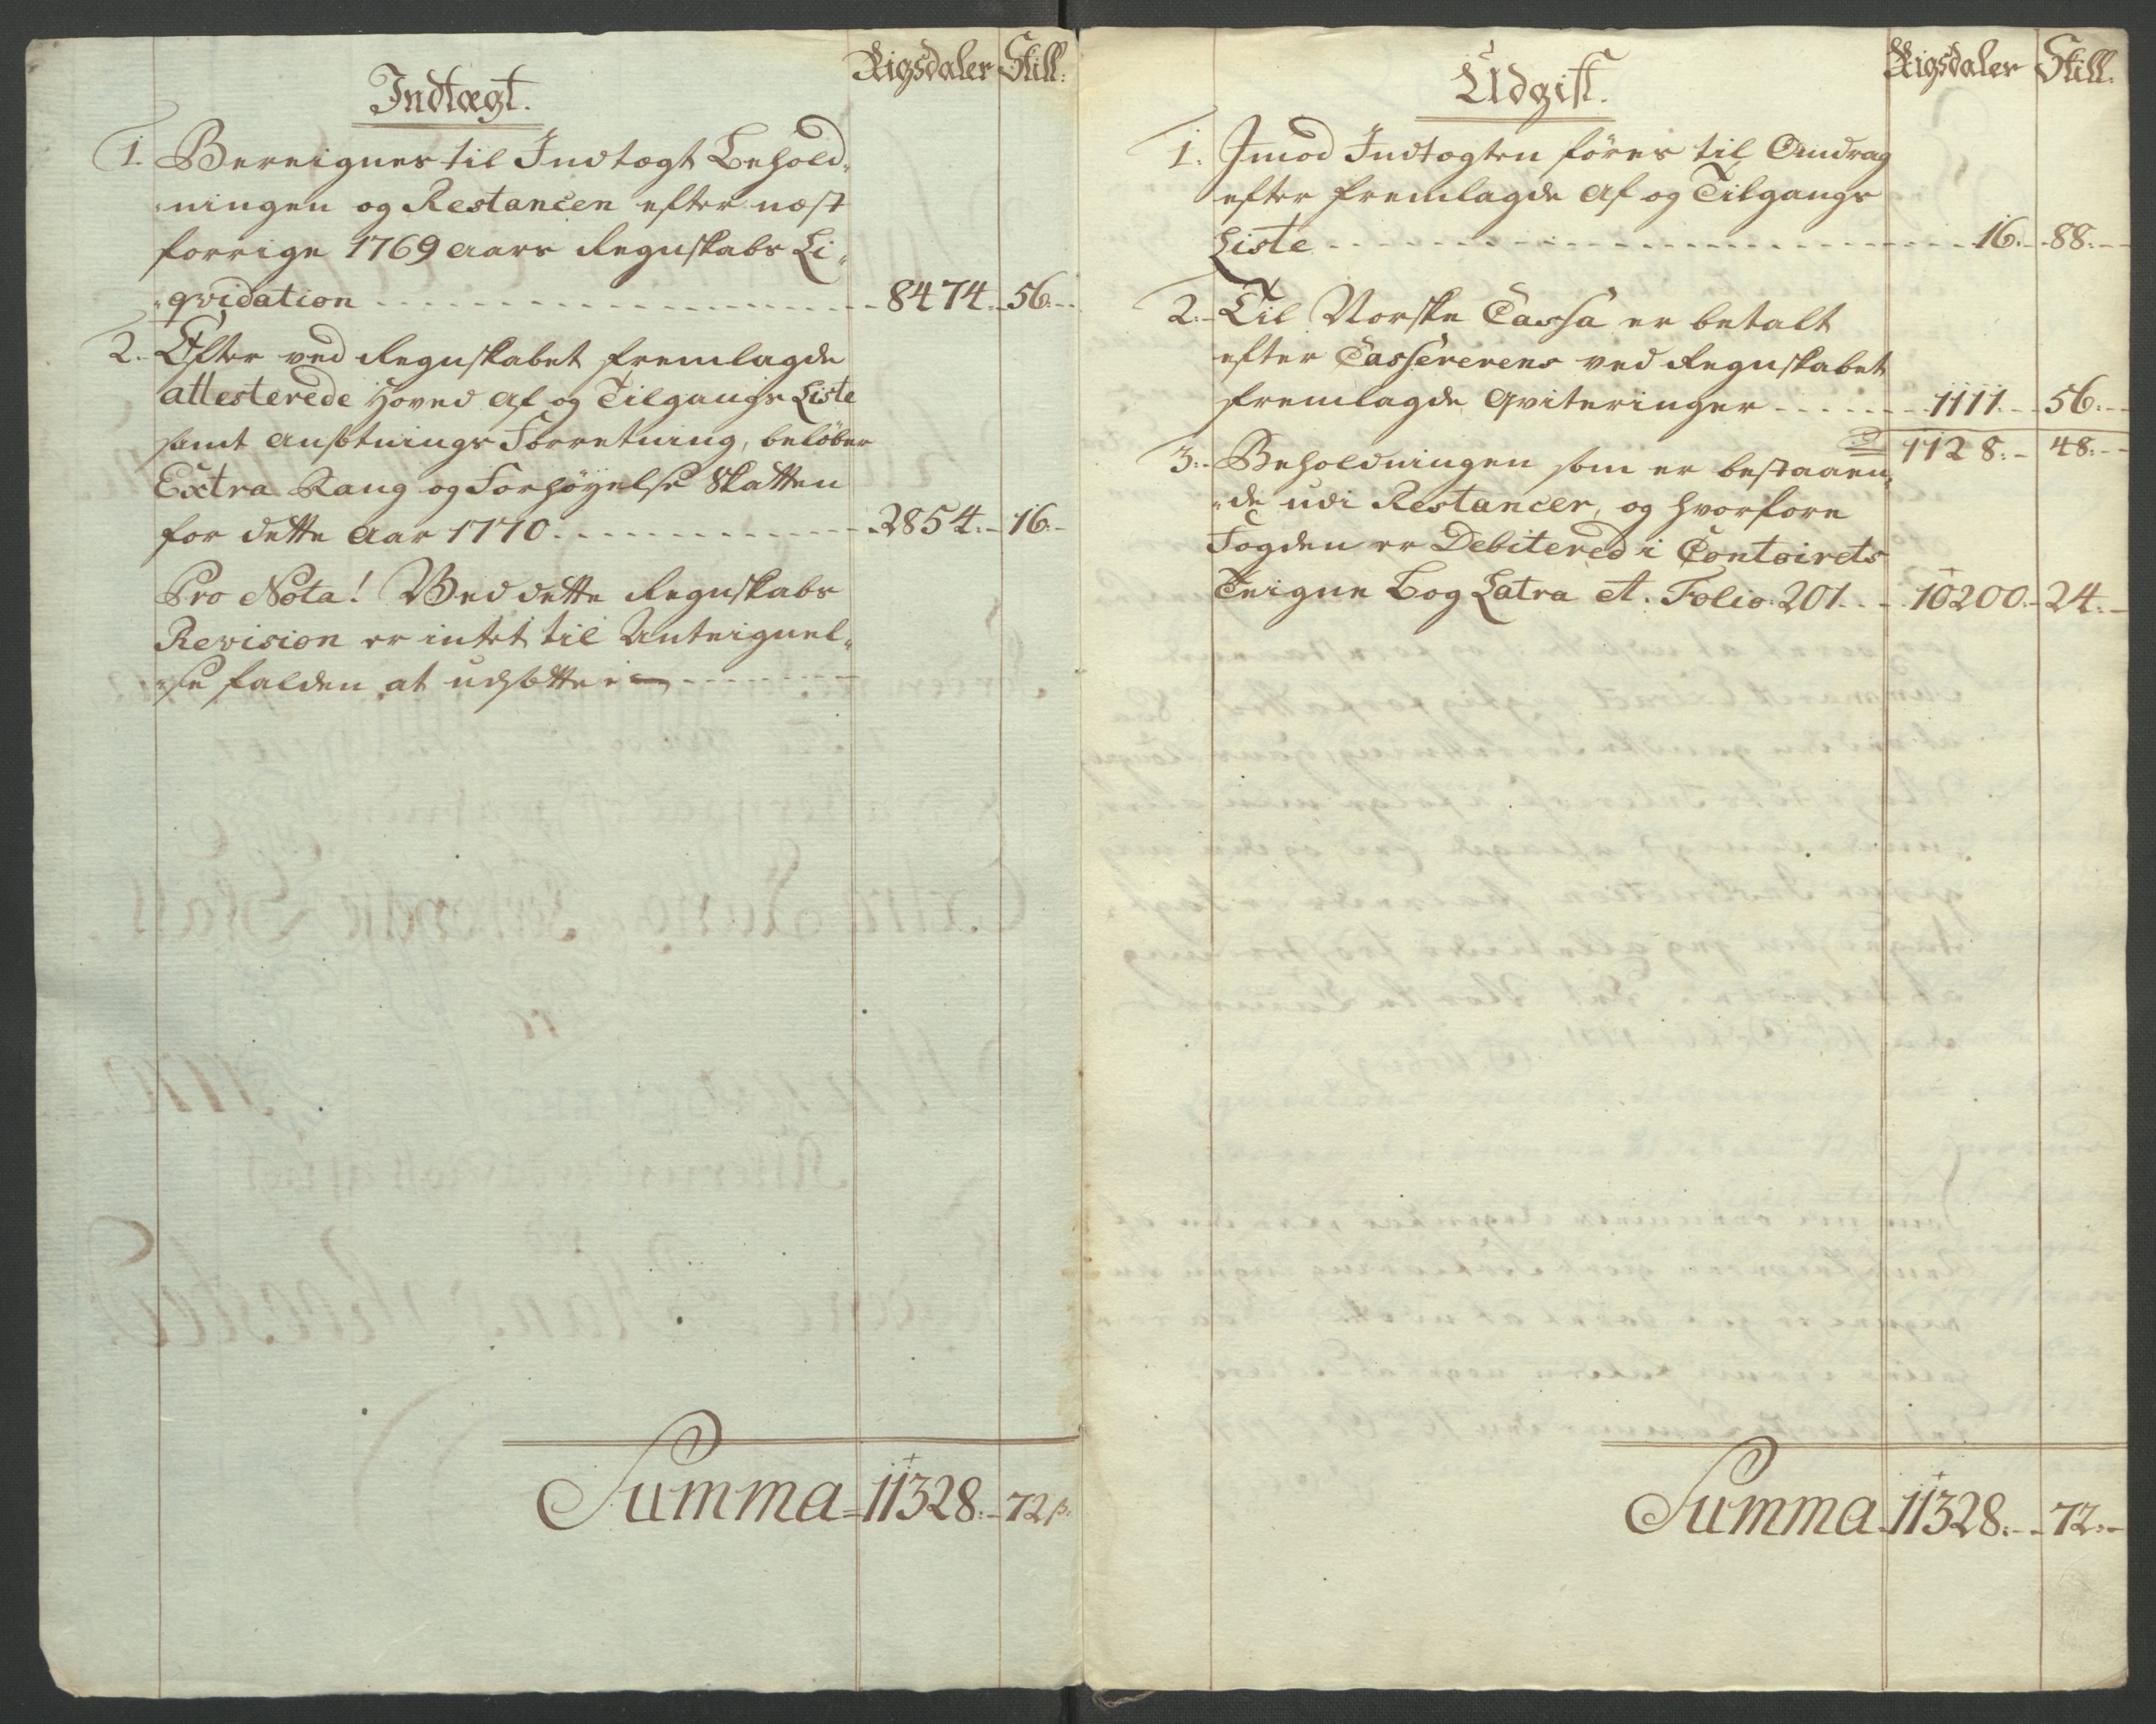 Rigsdaler Skill:
Indtægt.
1. Bereignes til Indtægt Behold-
ningen og Restancen efter næst
forrige 1769 Aars Regnskabs Li-
qvidation 8474. 56.
2. Efter ved Regnskabet fremlagde
attesterede Hoved Af og Tilgangs Liste
samt Ansætnings Forretning, beløber
Extra Rang og Forhøyelse Skatten
for dette Aar 1770. 2854. 16.
Pro Nota! Ved dette Regnskabs
Revision er intet til Anteignel-
se falden at udsætte
Summa 11328. 72 ß.
Rigsdaler Skill:
Udgift.
1. Imod Indtægten føres til Andrag
efter fremlagde Af og Tilgangs
Liste 16. 88.
2. Til Norske Cassa er betalt
efter Cassererens ved Regnskabet
fremlagde Qviteringer 1111. 56.
1128. 48.
3. Beholdningen som er bestaaen-
de udi Restancer, og hvorfore
Fogden er Debitered i Contoirets
Teigne Bog Latra A. Folio. 201. 10200. 24.
Summa 11328. 72.